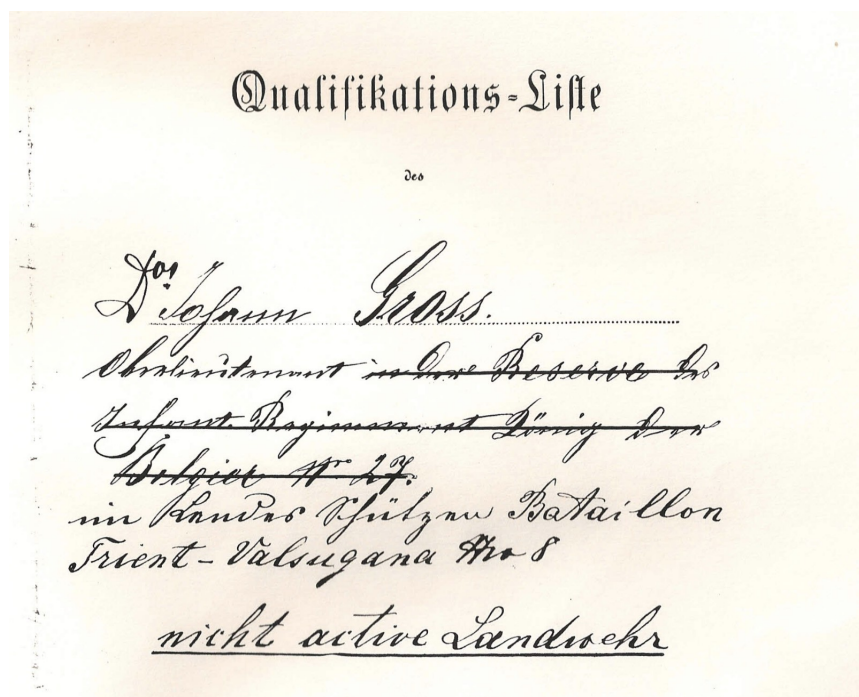 Qualifikations-Liste
des
Dor Johann Gross.
Oberlieutenant in der Reserve des
Infant. Regiment König der
Belgier No 27.
im Landes Schützen Bataillon
Trient - Valsugana Nro 8
nicht active Landwehr